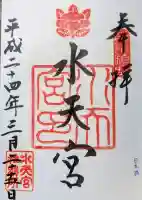 奉拝
水天宮
平成二十四年三月二十五日
水天宮